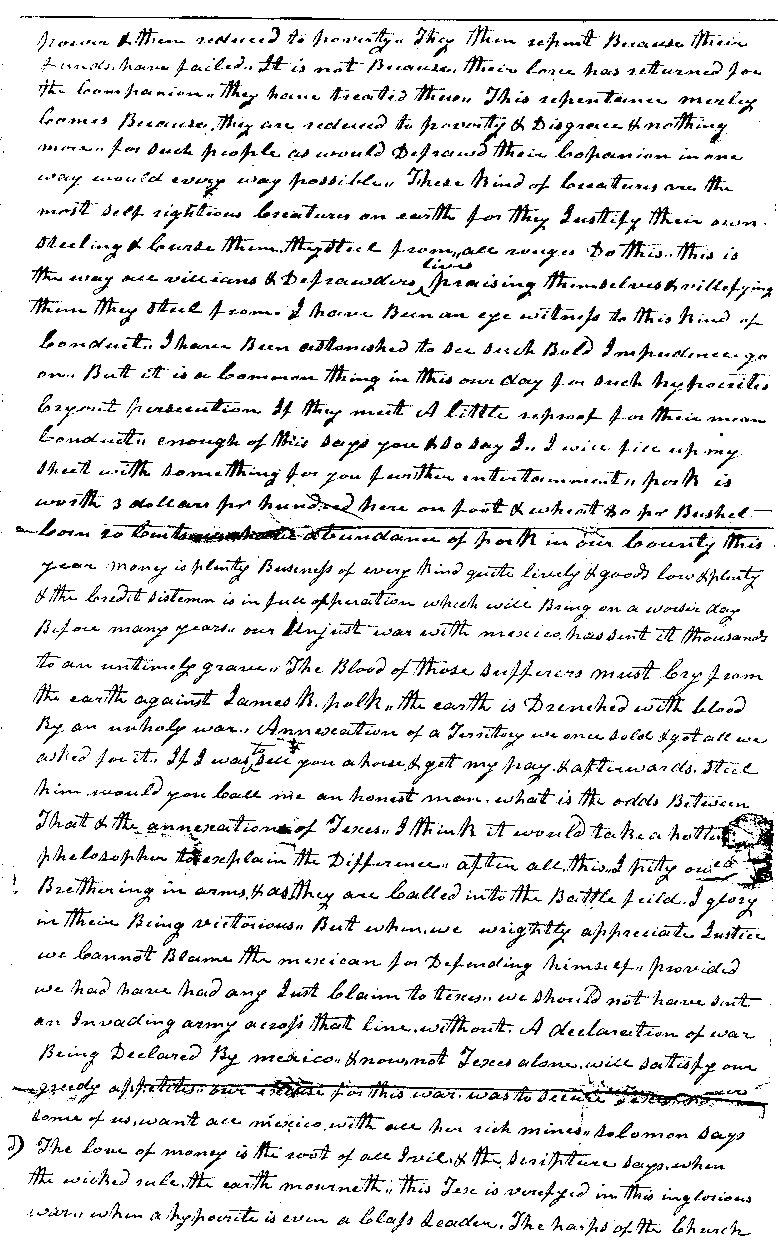 power & then reduced to poverty,, They then repent Because their
funds have failed,, It is not Because their love has returned for
the Companion,, they have treated thus,, This repentance merley
Comes Because they are reduced to poverty & Disgrace & nothing
more,, for such people as would Defrawd their Copanion in one
way would every way possible,, These kind of Creatures are the
most self rightious Creatures on earth for they Justify their own
Steeling & Curse them they steel from,, all rouges Do this,, this is
lives
the way all villians & Defrawders praising themselves & villefying
them they steel from,, I have Been an eye witness to this kind of
Conduct,, I have Been astonished to see such Bold Impudence go
on,, But it is a Common thing in this our day for such hypocrites
Cry out persecution If they meet A little reproof for their mean
Conduct,, enough of this says you & so say I,, I will fill up my
sheet with something for you further entertainment,, pork is
worth 3 dollars pr hundred here on foot & wheat 80 pr Bushel
Corn 20 Cents abundance of pork in our County this
year money is plenty Business of every kind quite lively & goods low & plenty
& the Credit sistemn is in full opperation which will Bring on a worse day
Before many years,, our Unjust war with mexico, has sent it thousands
to an untimely grave,, The Blood of those sufferers must Cry from
the earth against James K. polk,, the earth is Drenched with blood
By an unholy war,, Annexation of a Territory we once sold & got all we
asked for it,, If I was to sell you a horse & get my pay & afterwards steel
him, would you Call me an honest man, what is the odds Between
That & the annexation of Texes,, I think it would take a
philosopher to explain the Difference,, after all, this, I pity our
Brethering in arms, & as, they are Called into the Battle feild, I glory
in their Being victorious,, But when we wrightly appreciate Justice
we Cannot Blame the mexican for Defending himself,, provided
we had have had any Just Claim to texes,, we should not have sent
an Invading army across that line, without A declaration of war
Being Declared By mexico,, & now, not Texes alone, will satisfy our
greedy appetites,, our excuse for this war, was to secure Texes, now
some of us, want all mexico, with all her rich mines,, solomon says
The love of money is the root of all Evil, & the scripture says, when
the wicked rule, the earth mourneth,, this Tex is verefyed in this inglorious
war,, when a hypocrite is even a Class Leader, The harps of the Church